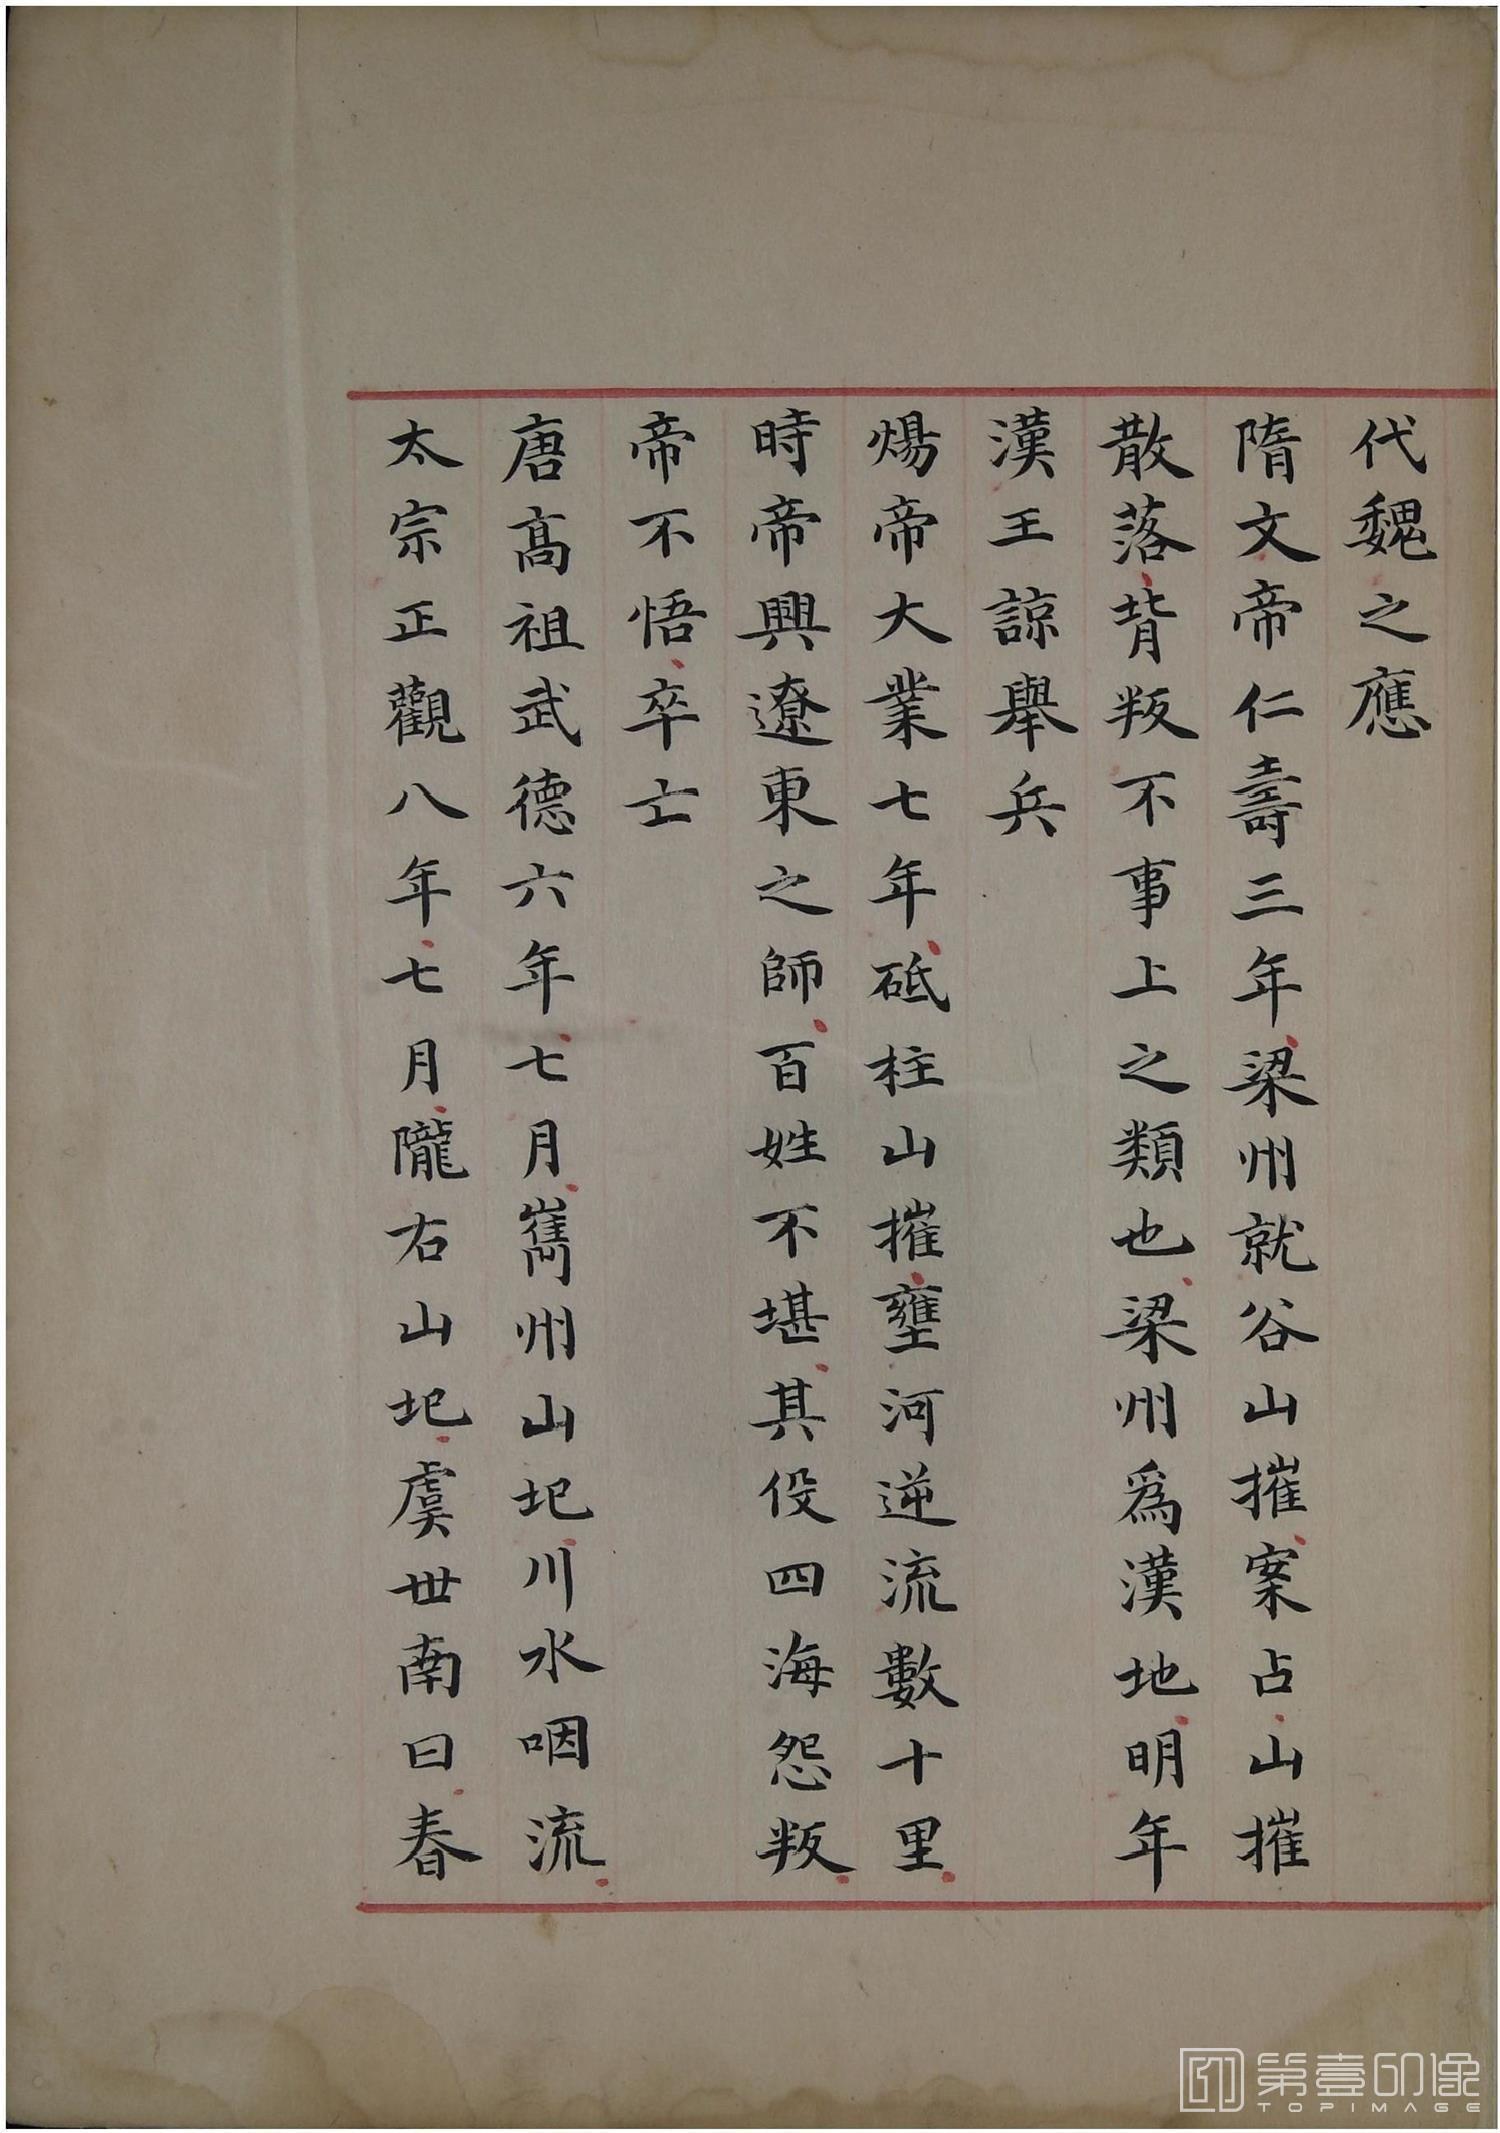 代魏之應
隋文帝仁壽三年梁州就谷山摧案占山摧
散落背叛不事上之類也梁州爲漢地明年
漢王諒舉兵
煬帝大業七年砥柱山摧壅河逆流數十里
時帝興遼東之師百姓不堪其役四海怨叛
帝不悟卒亡
唐高祖武德六年七月巂州山圮川水咽流
太宗正觀八年七月隴右山圮虞世南曰春
第壹印像
TOPIMAGE